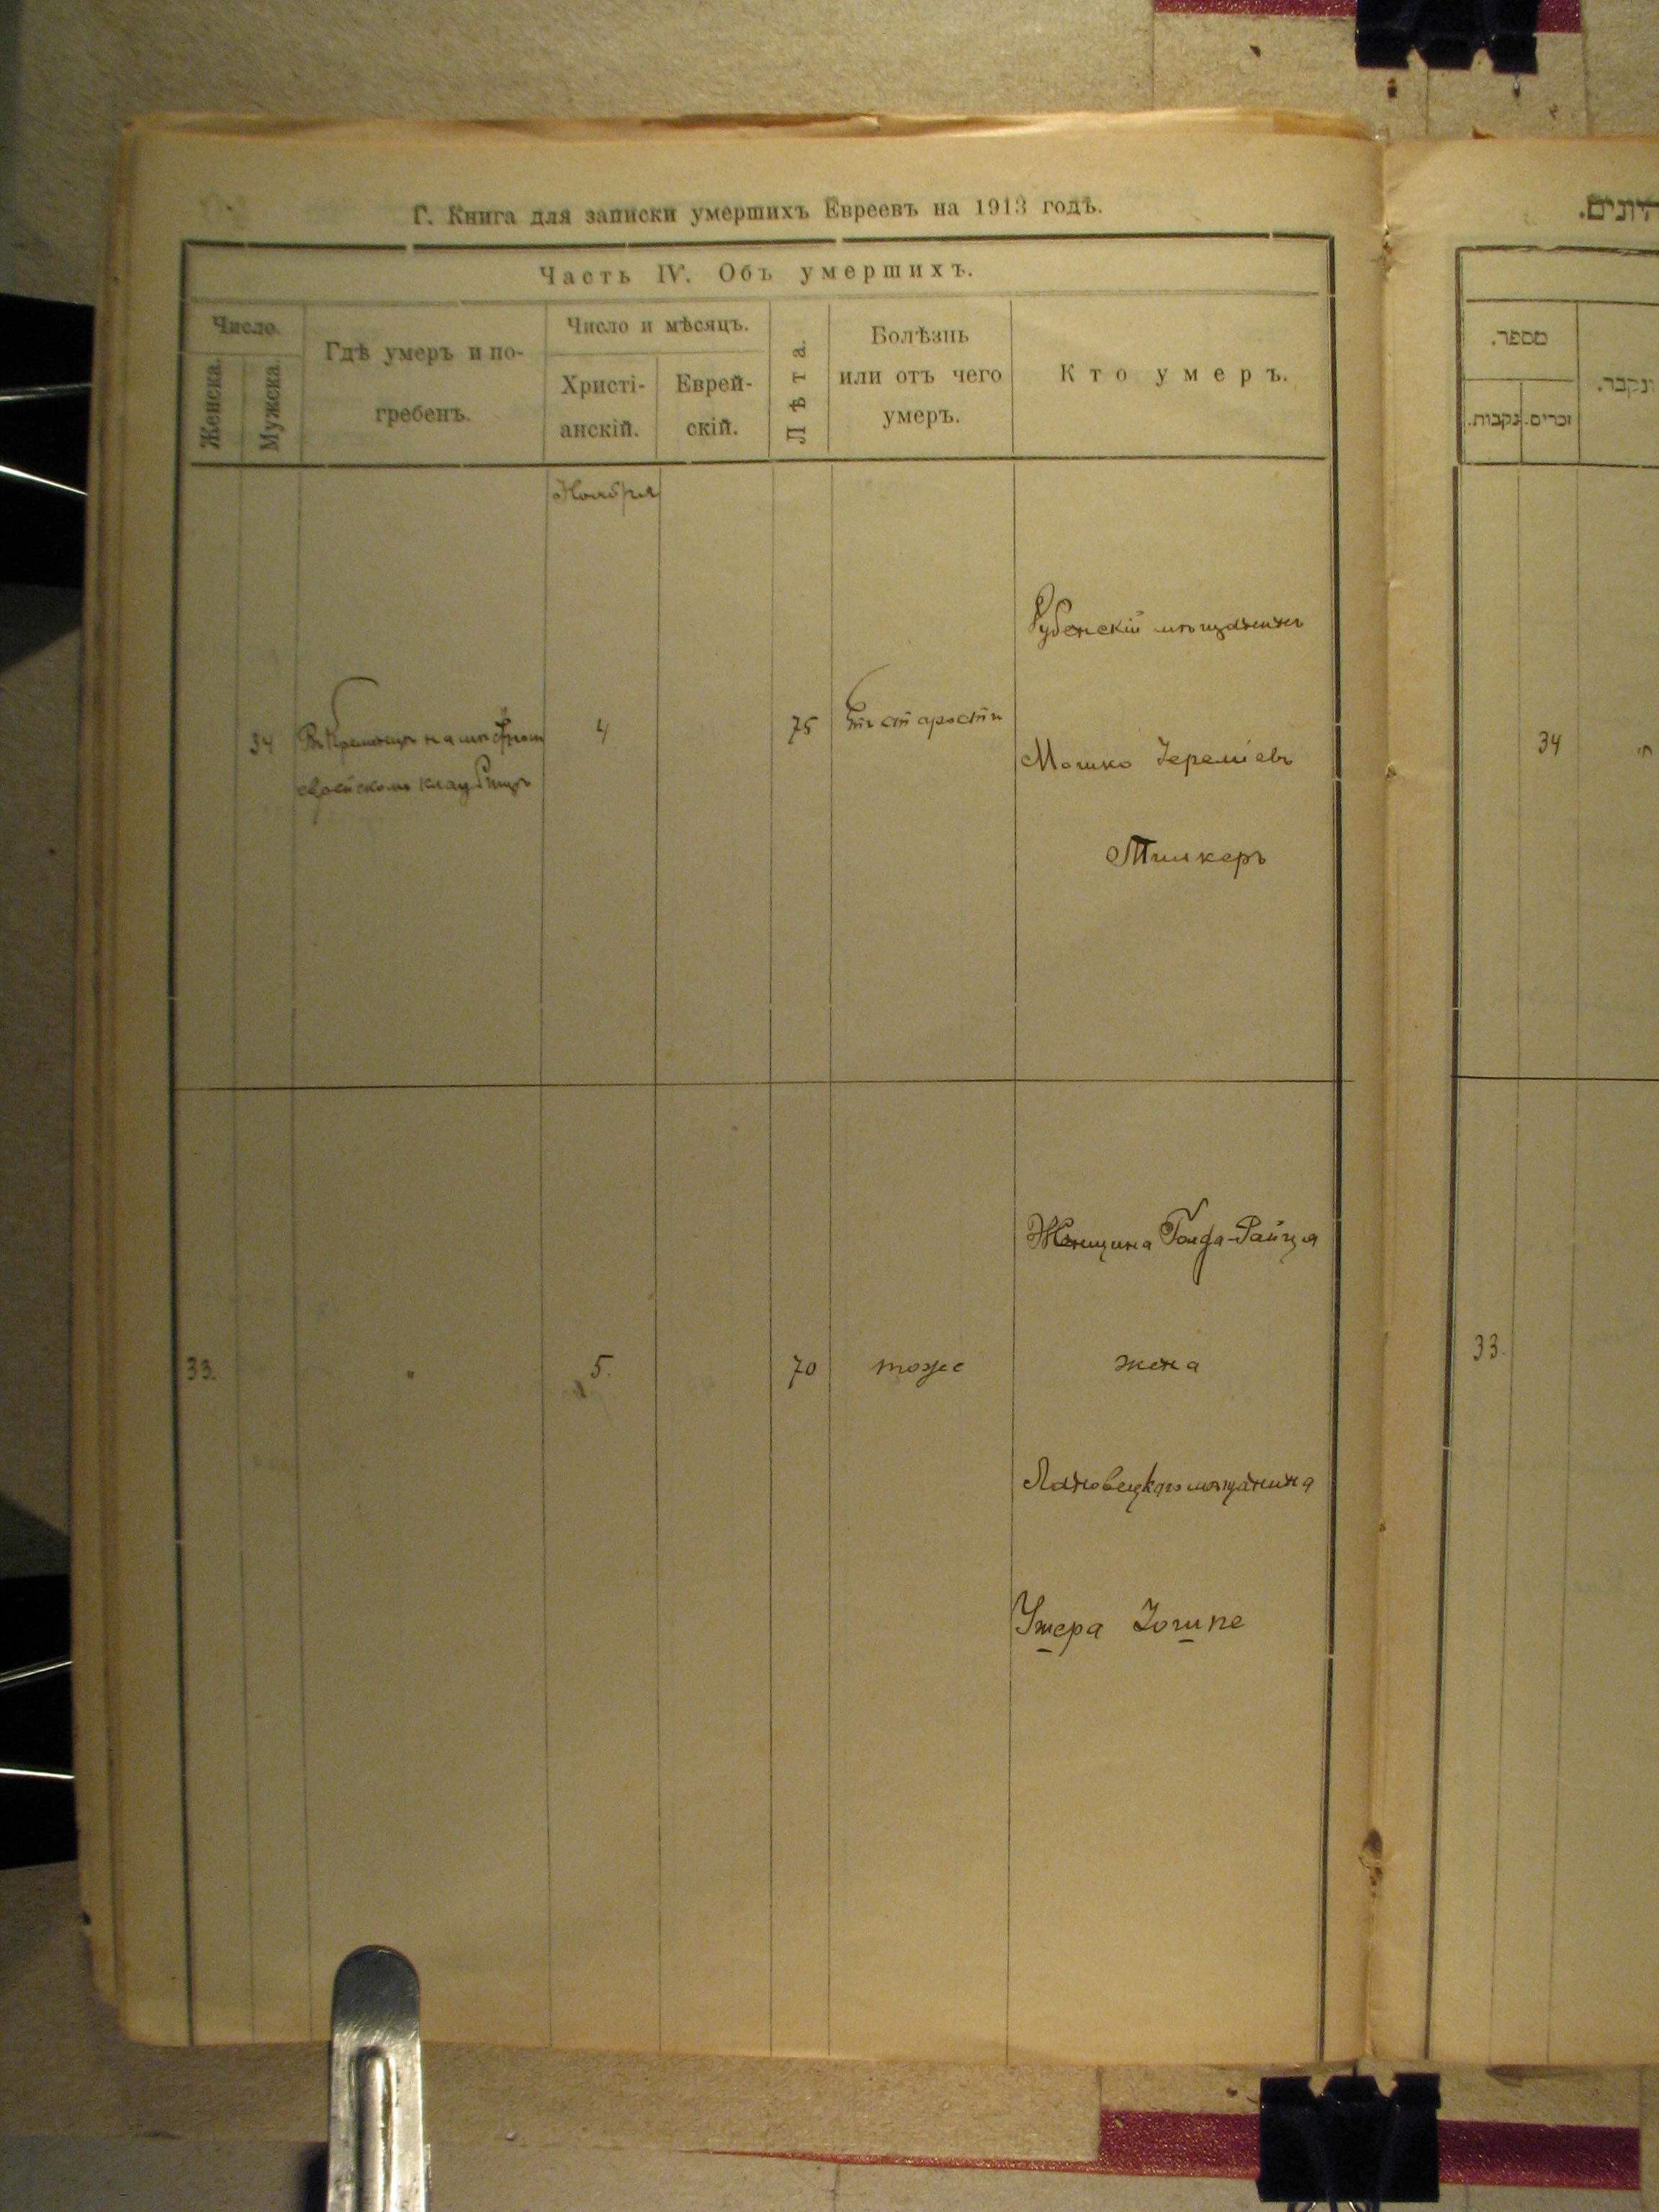 Г. Книга для записки умершихъ Евреевъ на 1913 годъ.
Часть IV. Объ умершихъ.
Число.
Женска.
Мужска.
Гдѣ умеръ и по-
гребенъ.
Число и мѣсяцъ.
Христі-
анскій.
Еврей-
скій.
Лѣта.
Болѣзнь
или отъ чего
умеръ.
Кто умеръ.
Ноября
34
Въ Кременцѣ на мѣстномъ
еврейскомъ кладбищѣ
4
75
Отъ старости
Дубенскій мѣщанинъ
Мошко Іереміевъ
33.
"
5.
70
тоже
Женщина Голда-Райзя
жена
Лановецкаго мѣщанина
יונים.
מספר.
נקבות.
זכרים.
ונקבר.
34
33.